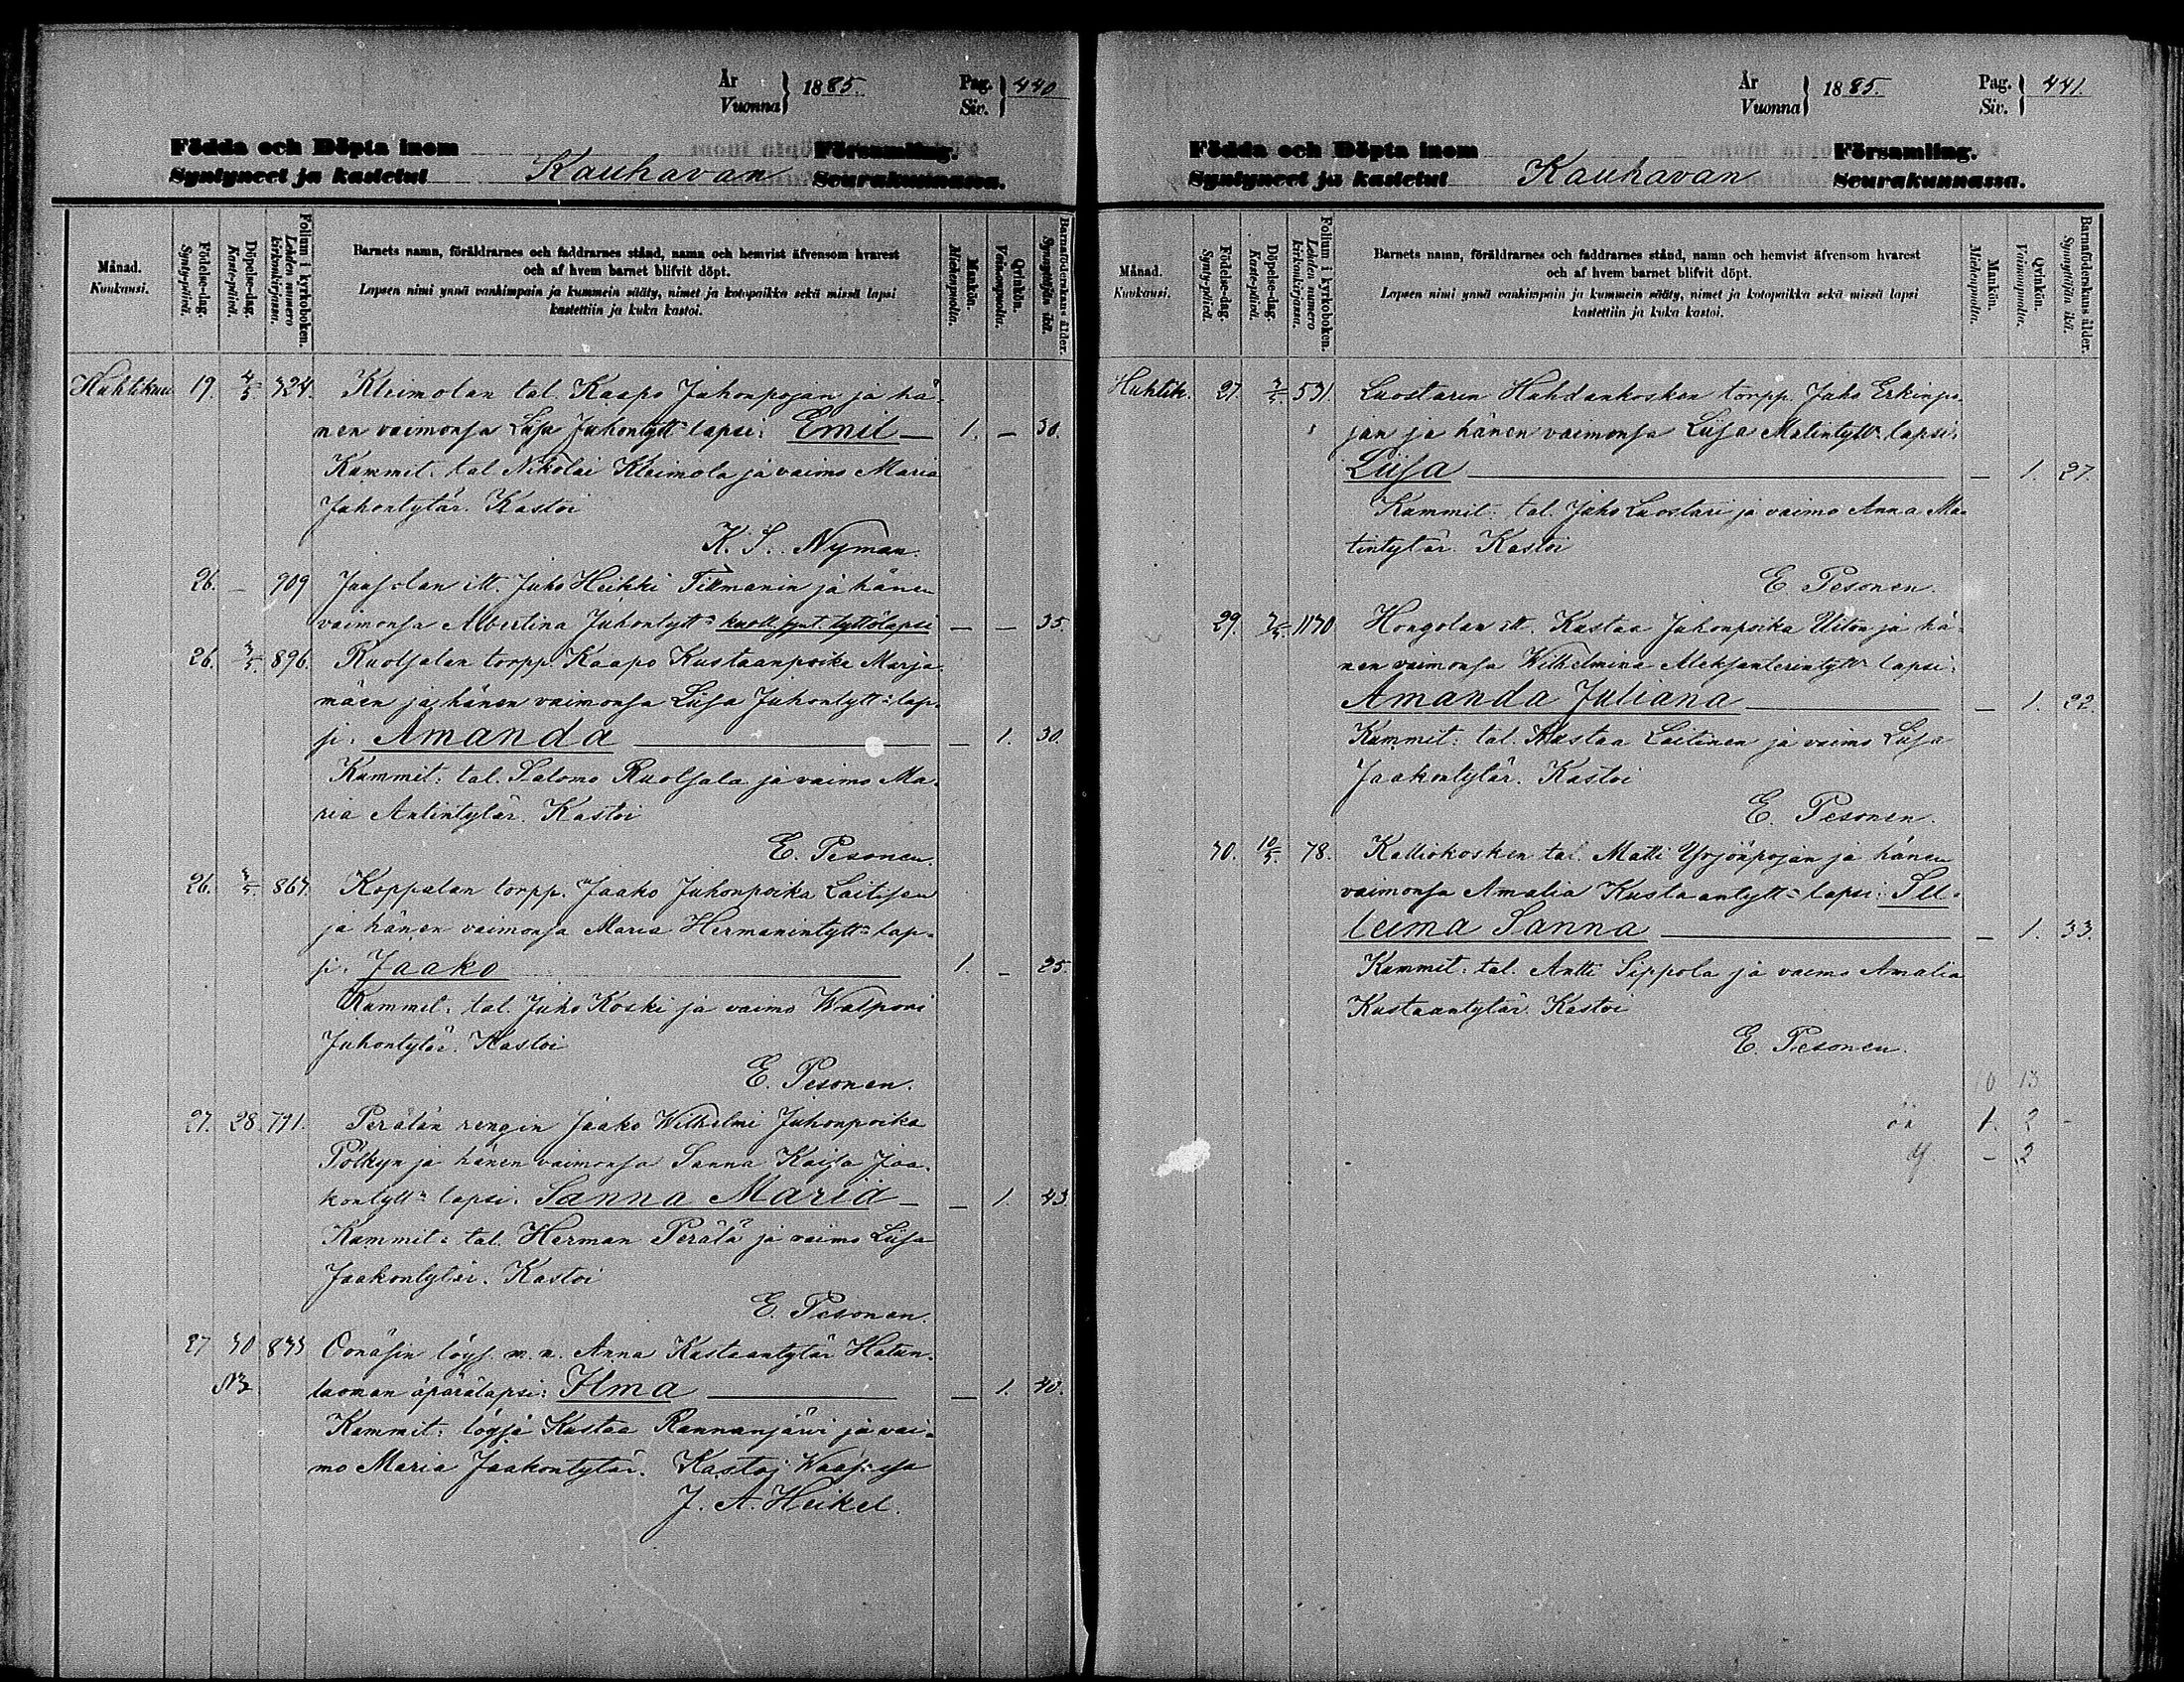 År
Vuonna } 1885. Pag.
Siv. } 440
Födda och Döpta inom Församling.
Syntyneet ja kastetut Kauhavan Seurakunnassa.
Månad.
Kuukausi.
Födelse-dag.
Synty-päivä.
Döpelse-dag.
Kaste-päivä.
Folium i kyrkoboken.
Lehden numero kirkonkirjassa.
Barnets namn, föräldrarnes och faddrarnes stånd, namn och hemvist äfvensom hvarest
och af hvem barnet blifvit döpt.
Lapsen nimi ynnä vanhimpain ja kummein sääty, nimet ja kotopaikka sekä missä lapsi
kastettiin ja kuka kastoi.
Mankön.
Miehenpuolia.
Qvinkön.
Vaimonpuolia.
Barnaföderskans ålder.
Synnyttäjän ikä.
Huhtikuu 19. 4/5 324. Kleimolan tal. Kaapo Juhonpojan ja hä-
nen vaimonsa Liisa Juhontytt= lapsi: Emil — 1. — 30.
Kummit: tal. Nikolai Kleimola ja vaimo Maria
Juhontytär. Kastoi
K. S. Nyman.
26. — 909 itt. Juho Heikki Tikmanin ja hänen
vaimonsa Albertina Juhontytt= kuoll. synt. tyttölapsi — — 35.
26. 3/5 896. Ruotsalan torpp. Kaapo Kustaanpoika Marja-
mäen ja hänen vaimonsa Liisa Juhontytt= lap-
si: Amanda — — 1. 30.
Kummit: tal. Salomo Ruotsala ja vaimo Ma-
ria Antintytär. Kastoi
E. Pesonen.
26. 3/5 867. Koppalan torpp. Jaako Juhonpoika Laitisen
ja hänen vaimonsa Maria Hermanintytt= lap-
si: Jaako 1. — 25.
Kummit: tal. Juho Koski ja vaimo Walpori
Juhontytär. Kastoi
E. Pesonen.
27. 28. 791. Perälän rengin Jaako Wilhelmi Juhonpoika
Pölkyn ja hänen vaimonsa Sanna Kaisa Jaa-
kontytt= lapsi: Sanna Maria — — 1. 43.
Kummit: tal. Herman Perälä ja vaimo Liisa
Jaakontytär. Kastoi
E. Pesonen.
27 30 833 löys. n. n. Anna Kustaantytär Hatun-
luoman äpärälapsi: Ilma — — 1. 40.
Kummit: löysä Kustaa Rannanjärvi ja vai-
mo Maria Jaakontytär. Kastoi
J. A. Heikel.
År
Vuonna } 1885. Pag.
Siv. } 441.
Födda och Döpta inom Församling.
Syntyneet ja kastetut Kauhavan Seurakunnassa.
Månad.
Kuukausi.
Födelse-dag.
Synty-päivä.
Döpelse-dag.
Kaste-päivä.
Folium i kyrkoboken.
Lehden numero kirkonkirjassa.
Barnets namn, föräldrarnes och faddrarnes stånd, namn och hemvist äfvensom hvarest
och af hvem barnet blifvit döpt.
Lapsen nimi ynnä vanhimpain ja kummein sääty, nimet ja kotopaikka sekä missä lapsi
kastettiin ja kuka kastoi.
Mankön.
Miehenpuolia.
Qvinkön.
Vaimonpuolia.
Barnaföderskans ålder.
Synnyttäjän ikä.
Huhtik. 27. 3/5 531. Luostarin Huhdankosken torpp. Juho Erkinpo-
jan ja hänen vaimonsa Liisa Matintytt= lapsi:
Liisa — — 1. 27.
Kummit: tal. Juho Luostari ja vaimo Anna Ma-
tintytär. Kastoi
E. Pesonen.
29. 3/5 1170 Hongolan itt. Kustaa Juhonpoika Uiton ja hä-
nen vaimonsa Wilhelmina Aleksanterintytt= lapsi:
Amanda Juliana — — 1. 22.
Kummit: tal. Kustaa Laitinen ja vaimo Liisa
Jaakontytär. Kastoi
E. Pesonen.
30. 10/5 78. Kalliokosken tal. Matti Yrjönpojan ja hänen
vaimonsa Amalia Kustaantytt= lapsi: Sel-
leima Sanna — — 1. 33.
Kummit: tal. Antti Sippola ja vaimo Amalia
Kustaantytär. Kastoi
E. Pesonen.
10 13
öä 1. 2 -
- 2